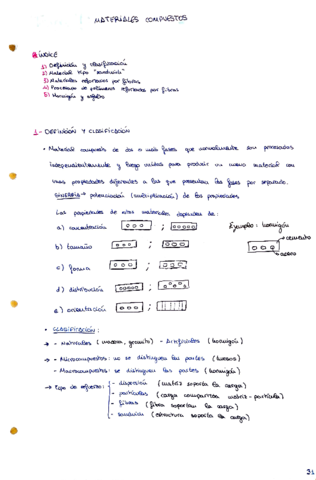 MATERIALES COMPUESTOS
ÍNDICE
1) Definición y clasificación
2) Material tipo "sandwich"
3) Materiales reforzados por fibras
4) Procesado de polímeros reforzados por fibras
5) Hormigón y asfalto
1- DEFINICIÓN Y CLASIFICACIÓN
• Material compuesto de dos o más fases que normalmente son procesadas
independientemente y luego unidas para producir un nuevo material con
unas propiedades diferentes a las que presentaba las fases por separado.
SINERGIA → potenciación (multiplicación) de las propiedades
Las propiedades de estos materiales dependen de:
a) concentración ;
Ejemplo: hormigón
cemento
acero
b) tamaño ;
c) forma ;
d) distribución ;
e) orientación ;
• CLASIFICACIÓN:
→ - Naturales (madera, granito) - Artificiales (hormigón)
→ - Microcompuestos: no se distinguen las partes (huesos)
- Macrocompuestos: se distinguen las partes (hormigón)
→ Tipo de refuerzo: - dispersión (matriz soporta la carga)
- partículas (carga compartida matriz-partícula)
- fibras (fibra soporta la carga)
- sandwich (estructura soporta la carga)
31